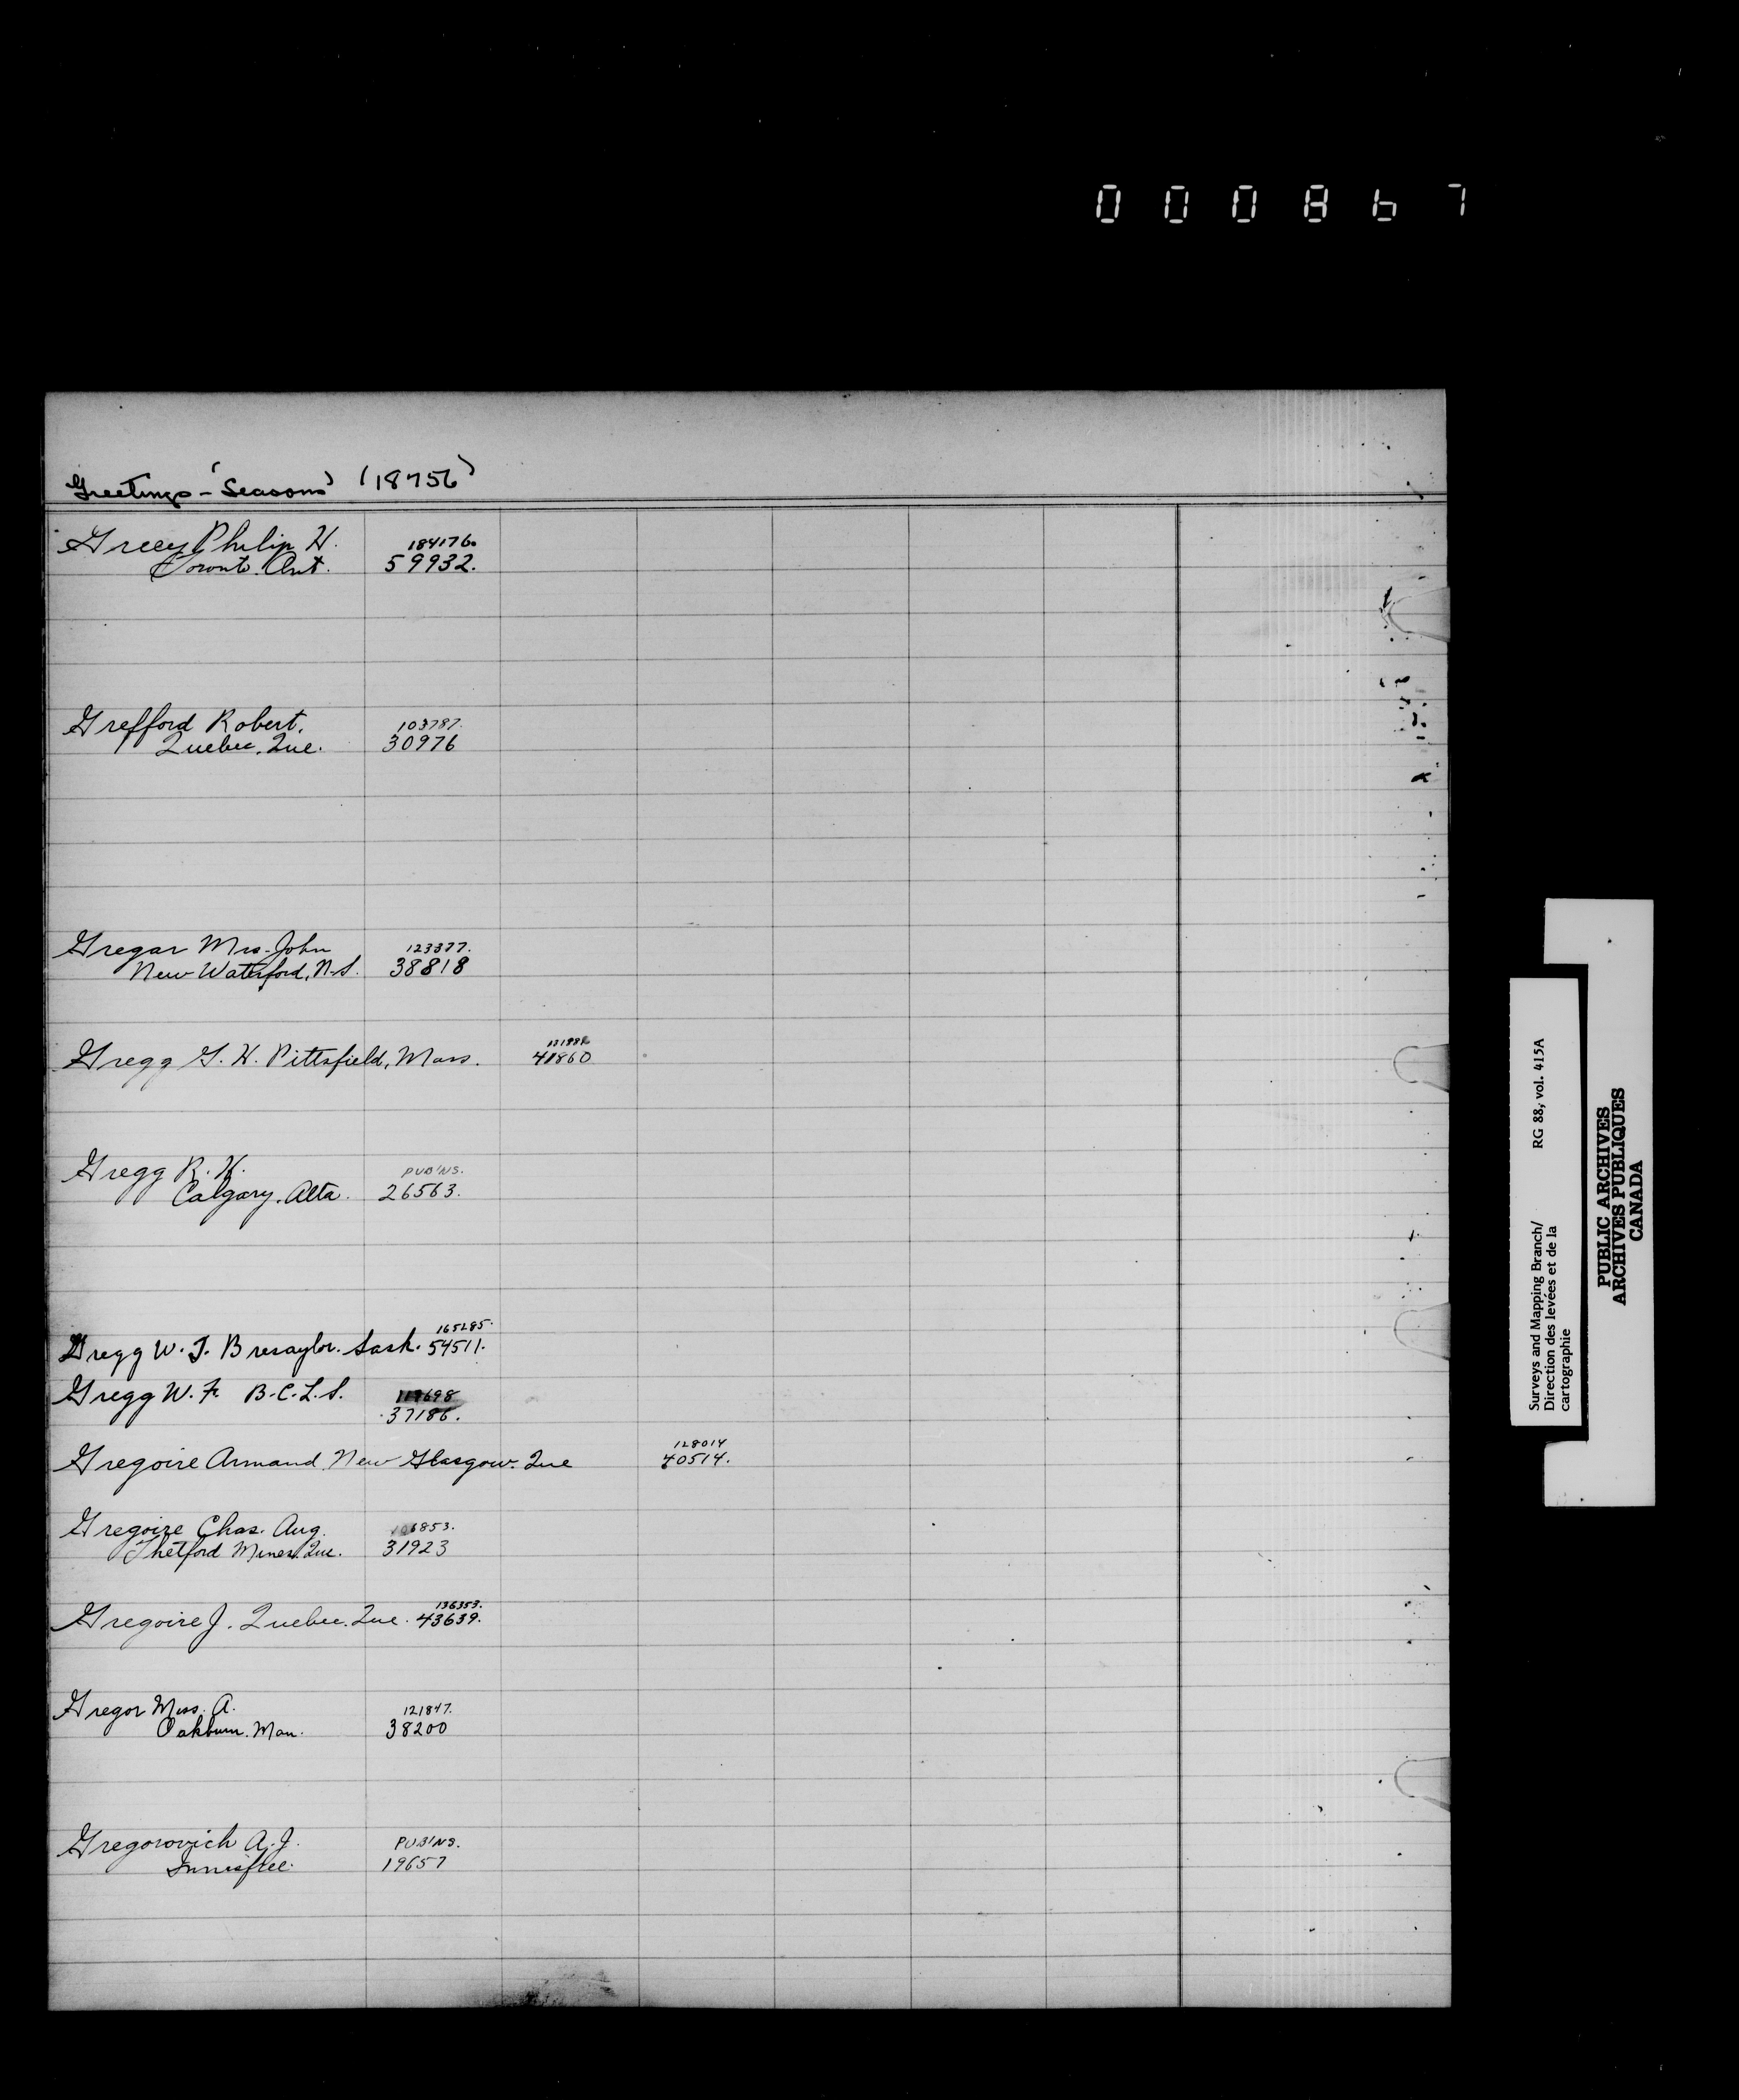 000867
Greetings - 'Seasons' (18756)
Greey Philip H. 184176.
Toronto. Ont. 59932.
Grefford Robert. 103787.
Quebec. Que. 30976
Gregar Mrs. John 123377.
New Waterford, N.S. 38818
Gregg G. H. Pittsfield, Mass. 41860
Gregg R. H. PUB'NS.
Calgary. Alta. 26563.
165285.
Gregg W. J. Bresaylor. Sask. 54511.
Gregg W. F. B.C.L.S. 119698
37186.
128014
Gregoire Armand. New Glasgow. Que 40514.
Gregoire Chas. Aug. 106853.
Thetford Mines. Que. 31923
136353.
Gregoire J. Quebec. Que. 43639.
Gregor Miss. A. 121847.
Oakburn. Man. 38200
Gregorovich A. J. PUB'NS.
Innisfree. 19657
Surveys and Mapping Branch/ RG 88, vol. 415A
Direction des levées et de la
cartographie
PUBLIC ARCHIVES
ARCHIVES PUBLIQUES
CANADA